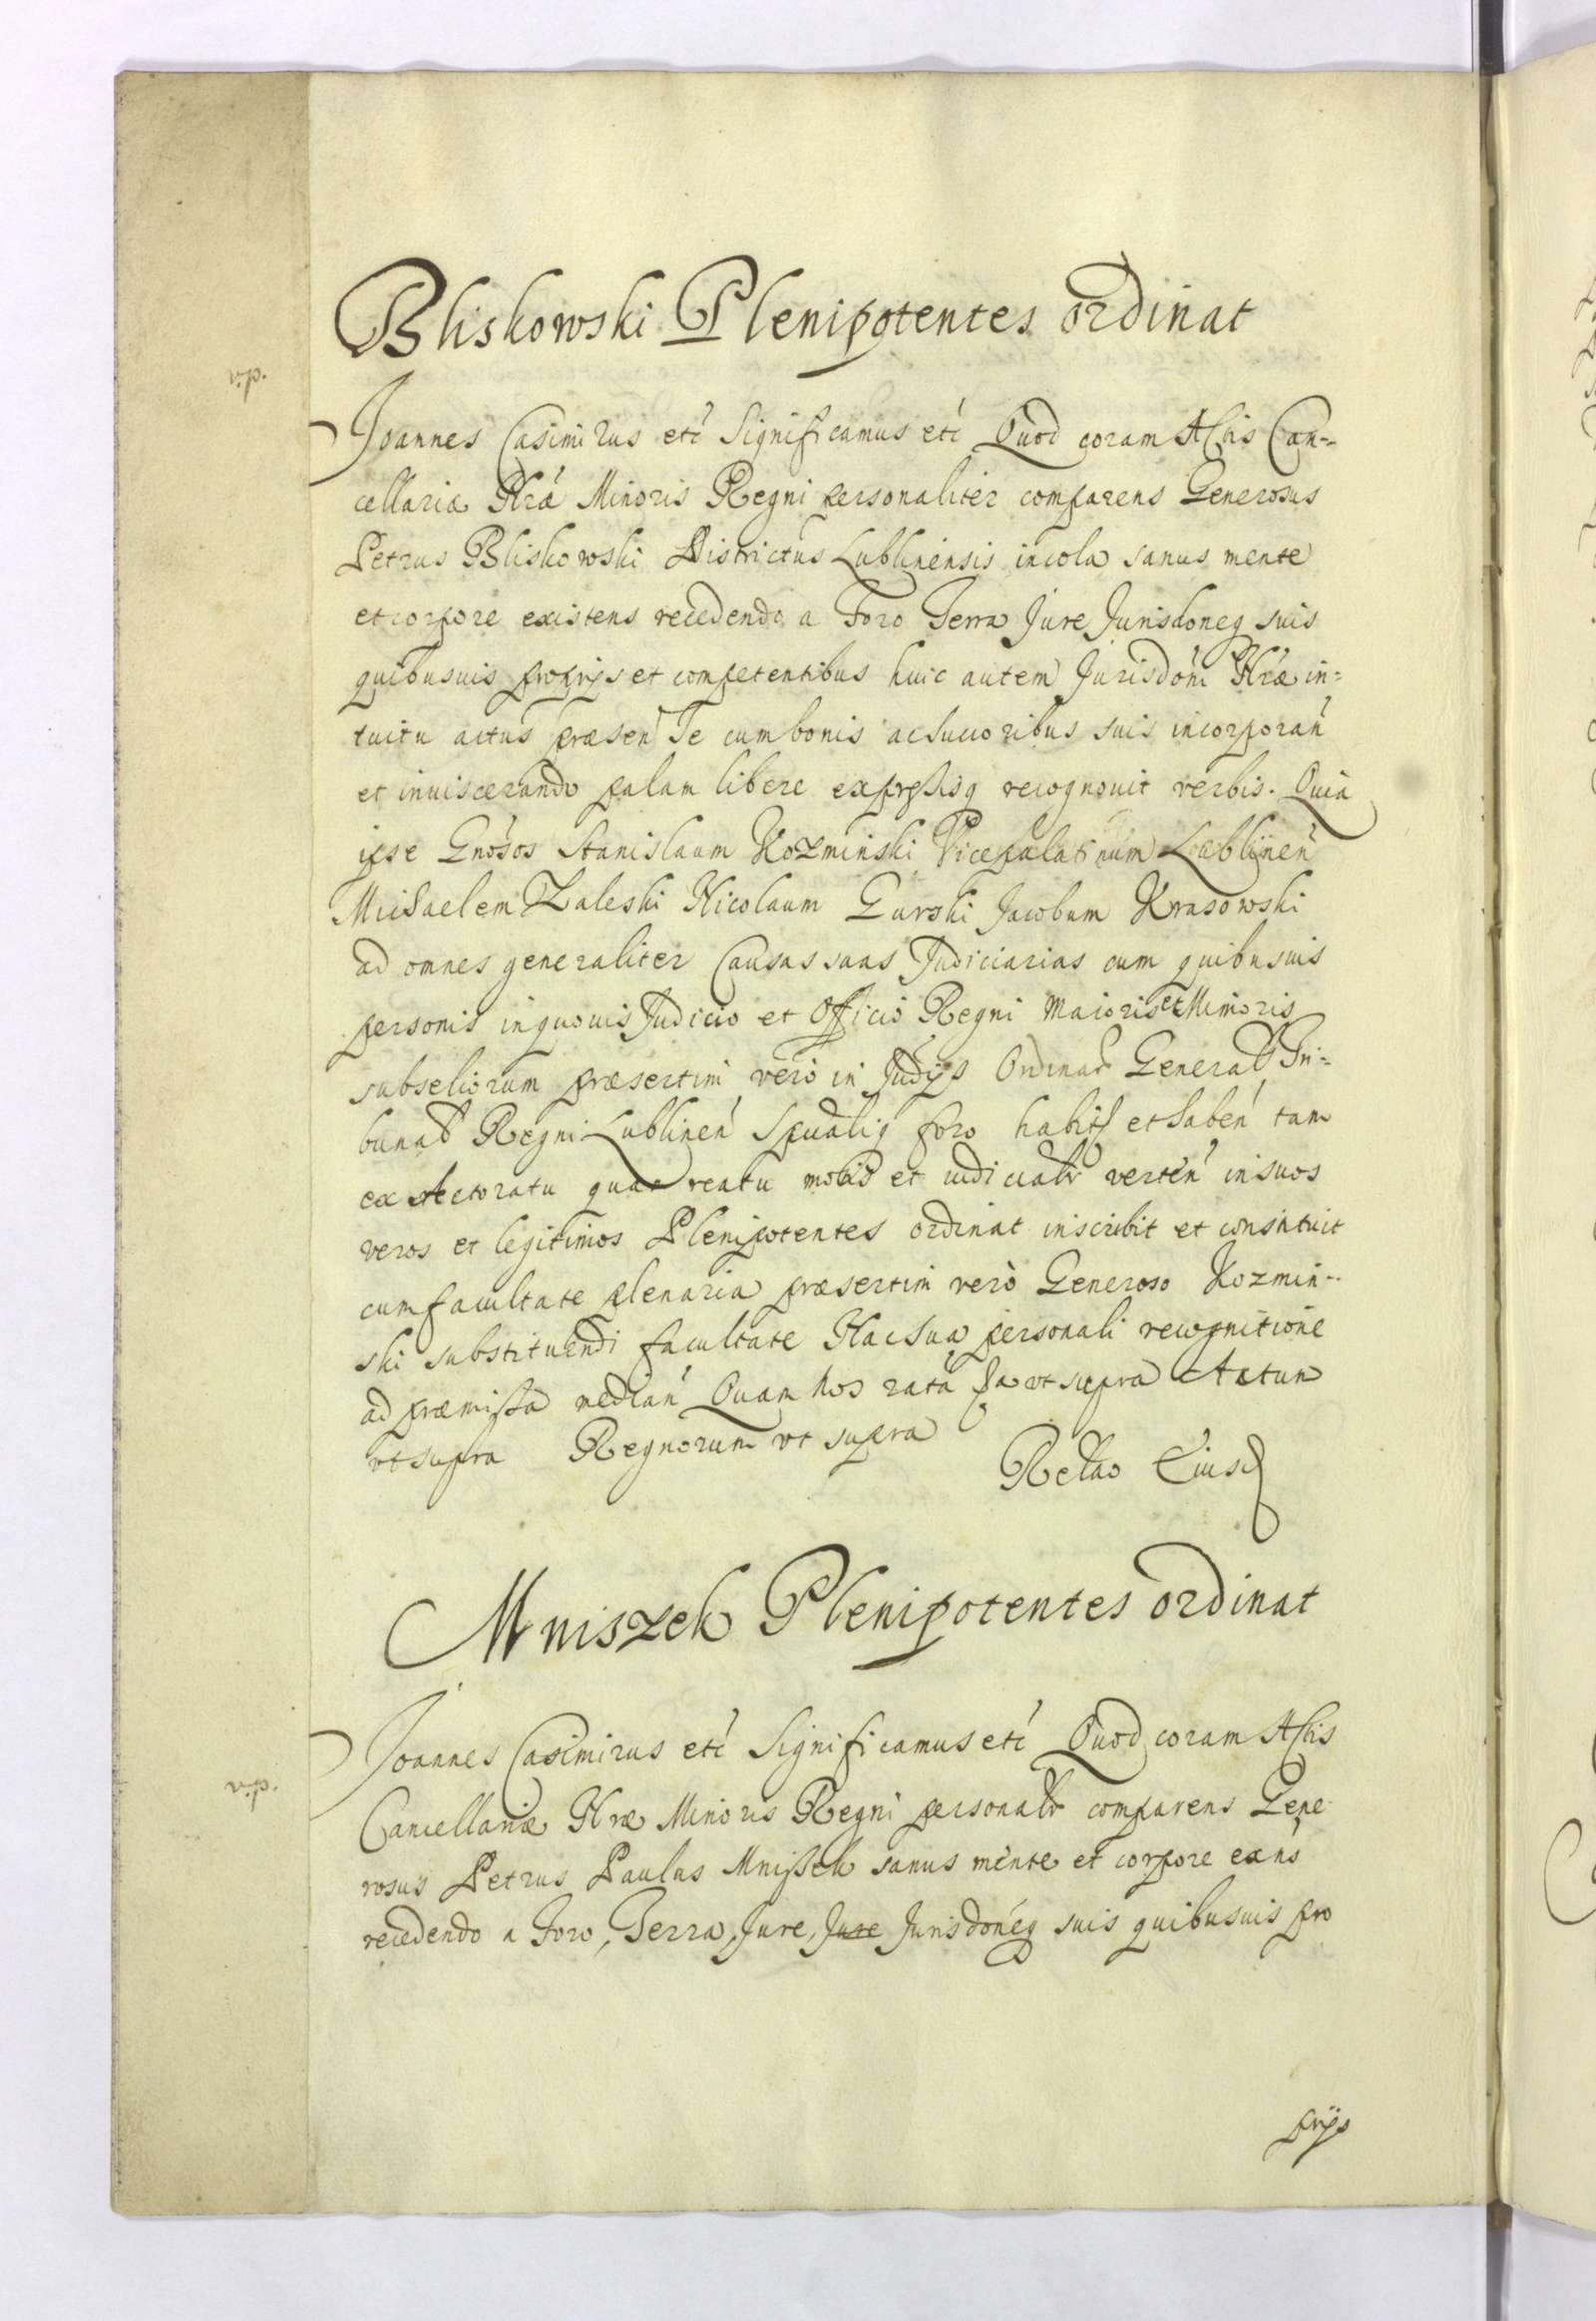 Bliskowski Plenipotentes ordinat
v.p.
Joannes Casimirus etc Significamus etc Quod coram Actis Can-
cellariæ Nræ Minoris Regni personaliter comparens Generosus
Petrus Bliskowski Districtus Lublinensis incola sanus mente
et corpore existens recedendo a Foro Terra Jure Jurisdoneq suis
quibusuis proprijs et competentibus huic autem Jurisdoni Nræ in=
tuitu actus præsen Se cum bonis ac succoribus suis incorporan
et inuiscerando palam libere expressisq recognouit verbis. Quia
ipse Gnosos Stanislaum Kozminski Vicepalatinum Lublinen
Michaelem Zaleski Nicolaum Gurski Jacobum Krasowski
ad omnes generaliter Causas suas Judiciarias cum quibusuis
personis in quouis Judicio et Officio Regni Maioris et Minoris
subseliorum præsertim vero in Judijs Ordinar General Tri=
bunal Regni Lublinen Spualiq foro habit et haben tam
ex Actoratu quam reatu motis et iudicialr verten in suos
veros et legitimos Plenipotentes ordinat inscribit et constituit
cum facultate plenaria præsertim verò Generoso Kozmin-
ski substituendi facultate Hac sua personali recognitione
ad præmissa median Quam hos rata ut supra Actum
vt supra Regnorum vt supra
Relao Eiusd
Mniszek Plenipotentes ordinat
v.p.
Joannes Casimirus etc Significamus etc Quod coram Actis
Cancellariæ Nræ Minoris Regni personalr comparens Gene
rosus Petrus Paulus Mnissek sanus mente et corpore exns
recedendo a Foro, Terra, Jure, Jure Jurisdoneq suis quibusuis pro
prijs